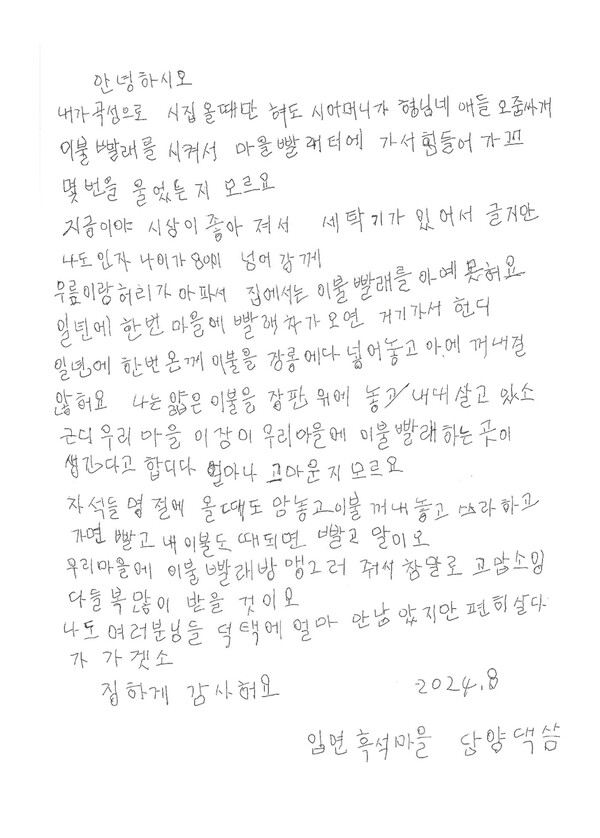 안녕하시오
내가 곡성으로 시집 올때만 혀도 시어머니가 형님네 애들 오줌싸개
이불 빨래를 시켜서 마을 빨래터에 가서 힘들어 가꼬
몇번을 울었는지 모르요
지금이야 시상이 좋아 져서 세탁기가 있어서 글지만
나도 인자 나이가 80이 넘어 강께
무릎이랑 허리가 아파서 집에서는 이불 빨래를 아예 못혀요
일년에 한번 마을에 빨래차가 오면 거기가서 헌디
일년에 한번 온께 이불을 장롱에다 넣어놓고 아에 꺼내질
않혀요 나는 얇은 이불을 장판 위에 놓고 내대 살고 있소
근디 우리 마을 이장이 우리마을에 이불 빨래 하는 곳이
생긴다고 합디다 얼마나 고마운지 모르요
자석들 명절에 올때도 암놓고 이불 꺼내 놓고 쓰라 하고
가면 빨고 내 이불도 때되면 빨고 말이오
우리마을에 이불 빨래방 맹그러 줘서 참말로 고맙소잉
다들 복 많이 받을 것이오
나도 여러분님들 덕택에 얼마 안남았지만 편히 살다
가 가겟소
집하게 감사혀요 2024.8
입면 흑석마을 담양댁 씀